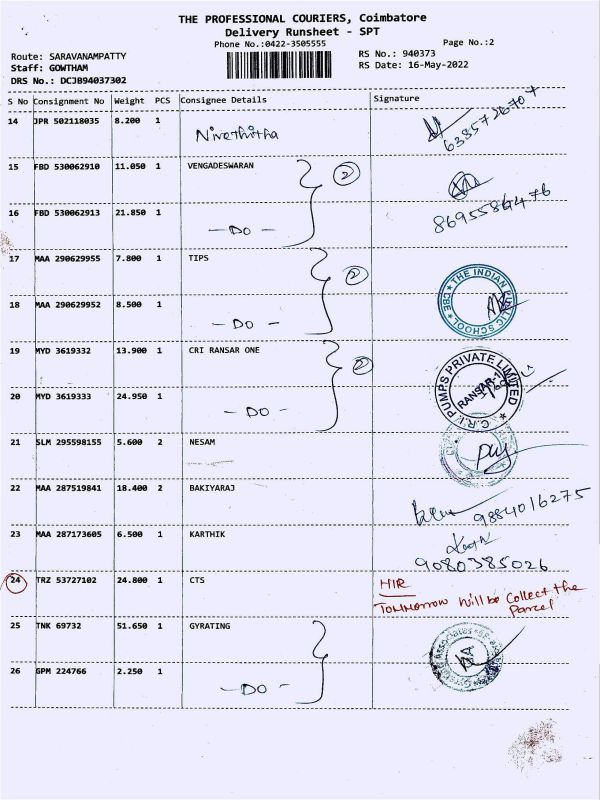 THE PROFESSIONAL COURIERS, Coimbatore
Delivery Runsheet - SPT
Phone No.:0422-3505555
Page No.:2
Route: SARAVANAMPATTY
Staff: GOWTHAM
DRS No.: DCJB94037302
RS No.: 940373
RS Date: 16-May-2022
S No Consignment No Weight PCS Consignee Details Signature
14 JPR 502118035 8.200 1 Nivethitha
15 FBD 530062910 11.050 1 VENGADESWARAN 2
16 FBD 530062913 21.850 1 -DO-
17 MAA 290629955 7.800 1 TIPS 2
THE INDIAN PUBLIC SCHOOL CBE
18 MAA 290629952 8.500 1 -DO-
19 MYD 3619332 13.900 1 CRI RANSAR ONE 2
C.R.I. PUMPS PRIVATE LIMITED
RANSAR-1
20 MYD 3619333 24.950 1 -DO-
21 SLM 295598155 5.600 2 NESAM
22 MAA 287519841 18.400 2 BAKIYARAJ 9884016275
23 MAA 287173605 6.500 1 KARTHIK 9080385026
24 TRZ 53727102 24.800 1 CTS
Tommorrow will be Collect the
Parcel
25 TNK 69732 51.650 1 GYRATING
26 GPM 224766 2.250 1 -DO-